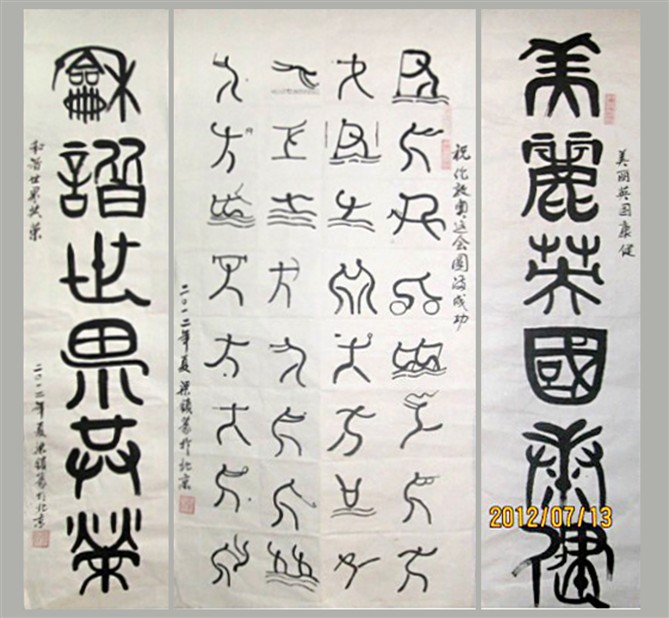 美麗英國康健
美丽英国康健
2012/07/13
祝伦敦奥运会圆满成功
二〇一二年夏 梁 篆於北京
龢諧世界共榮
和谐世界共荣
二〇一二年夏 梁 篆於北京